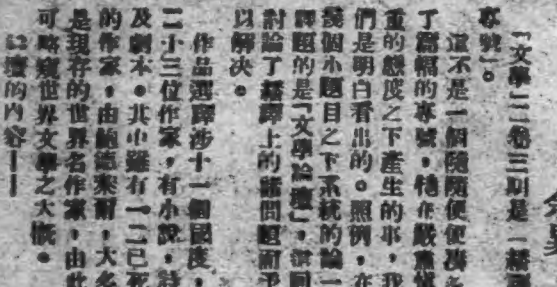 「文學」二卷三期是「翻譯
專號」。
這不是一個隨隨便便湊多
了篇幅的專號,牠在嚴肅慎
重的態度之下產生的事,我
們是明白看出的。照例,在
幾個小題目之下系統的論一
譯題的是「文學論壇」,
討論了翻譯上的諸問題而予
以解决。
作品選譯涉十一個國度,
二十三位作家,有小說,詩
及劇本。其中雖有一二已死
的作家,由總這來看,大多
是現存的世界名作家,由此
可略窺世界文學之大槪。
壇的內容——